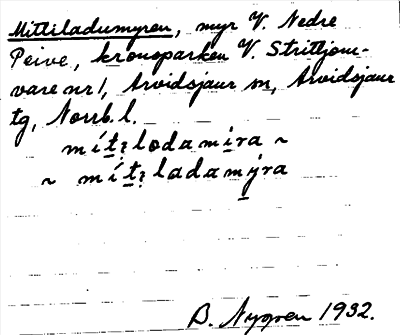 Mittiladumyren, myr V. Nedre
Peive, kronoparken V. Strittjom-
vare nr 1, Arvidsjaur sn, Arvidsjaur
tg, Norrb. l.
mítįlodamira ~
~ mítįladamýra
B. Nygren 1932.